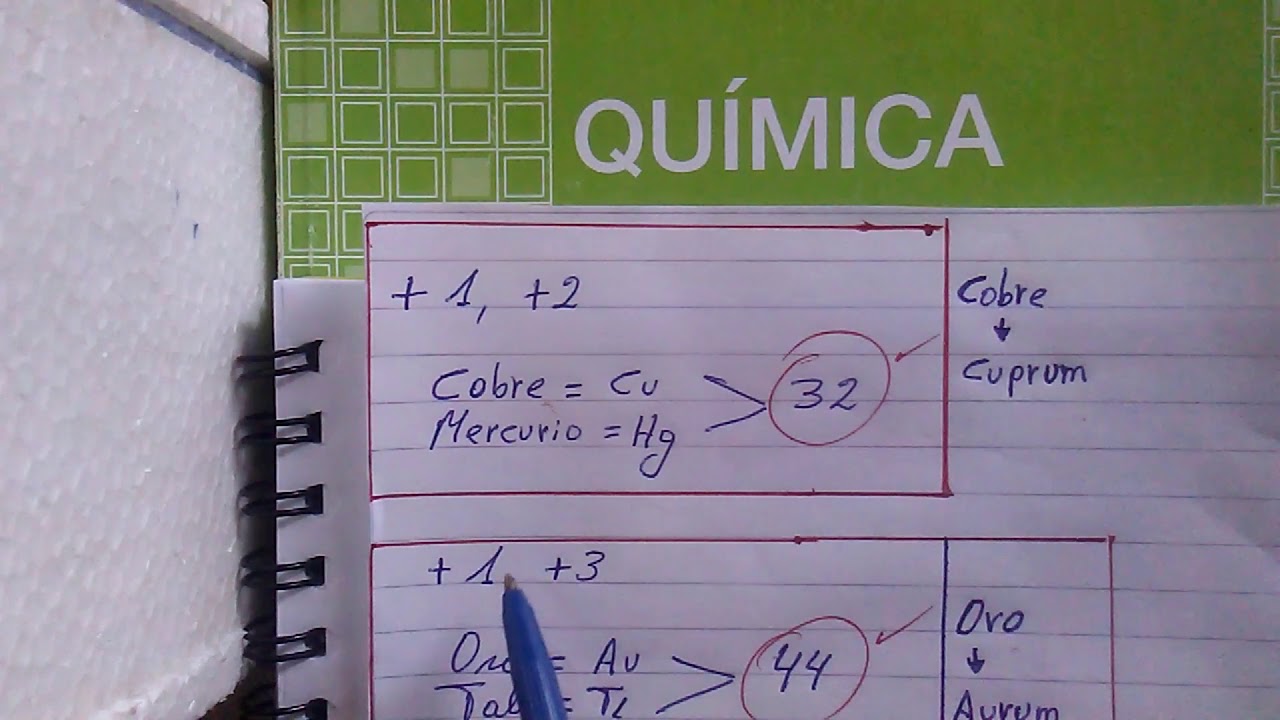 QUÍMICA
+1, +2
Cobre
↓
Cuprum
Cobre = Cu
Mercurio = Hg
32
+1 +3
Oro
↓
Aurum
= Au
= TL
44